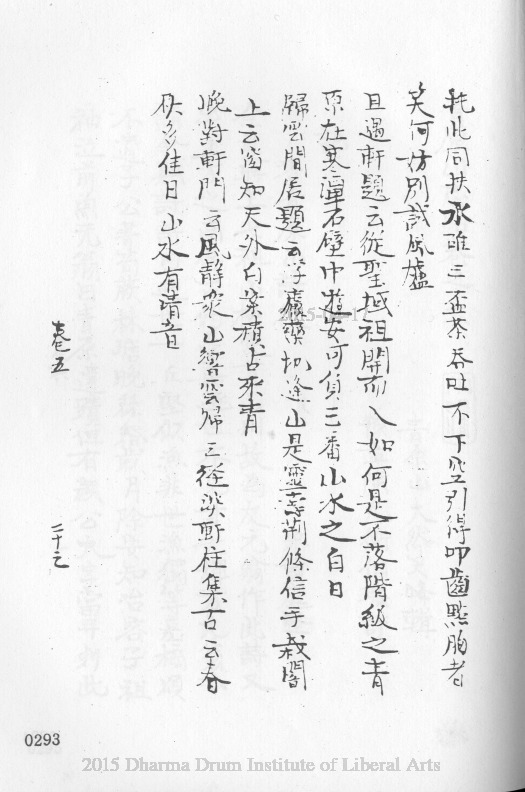 此同扶承雖三盃茶吞吐不下空引得叩齒點胸者
笑何妨別試風爐
且過軒題云從聖域祖開而入如何是不落階級之青
原在寒潭石壁中遊安可負三番山水之白日
歸雲閒居題云浮嵐藥切逢山是靈壽荊條信手栽閣
上云窗知天外白朵積占來青
晚對軒門云風靜衆山響雲歸三徑深斯柱集古云春
秋多佳日山水有清音
卷五
二十三
0293
2015 Dharma Drum Institute of Liberal Arts